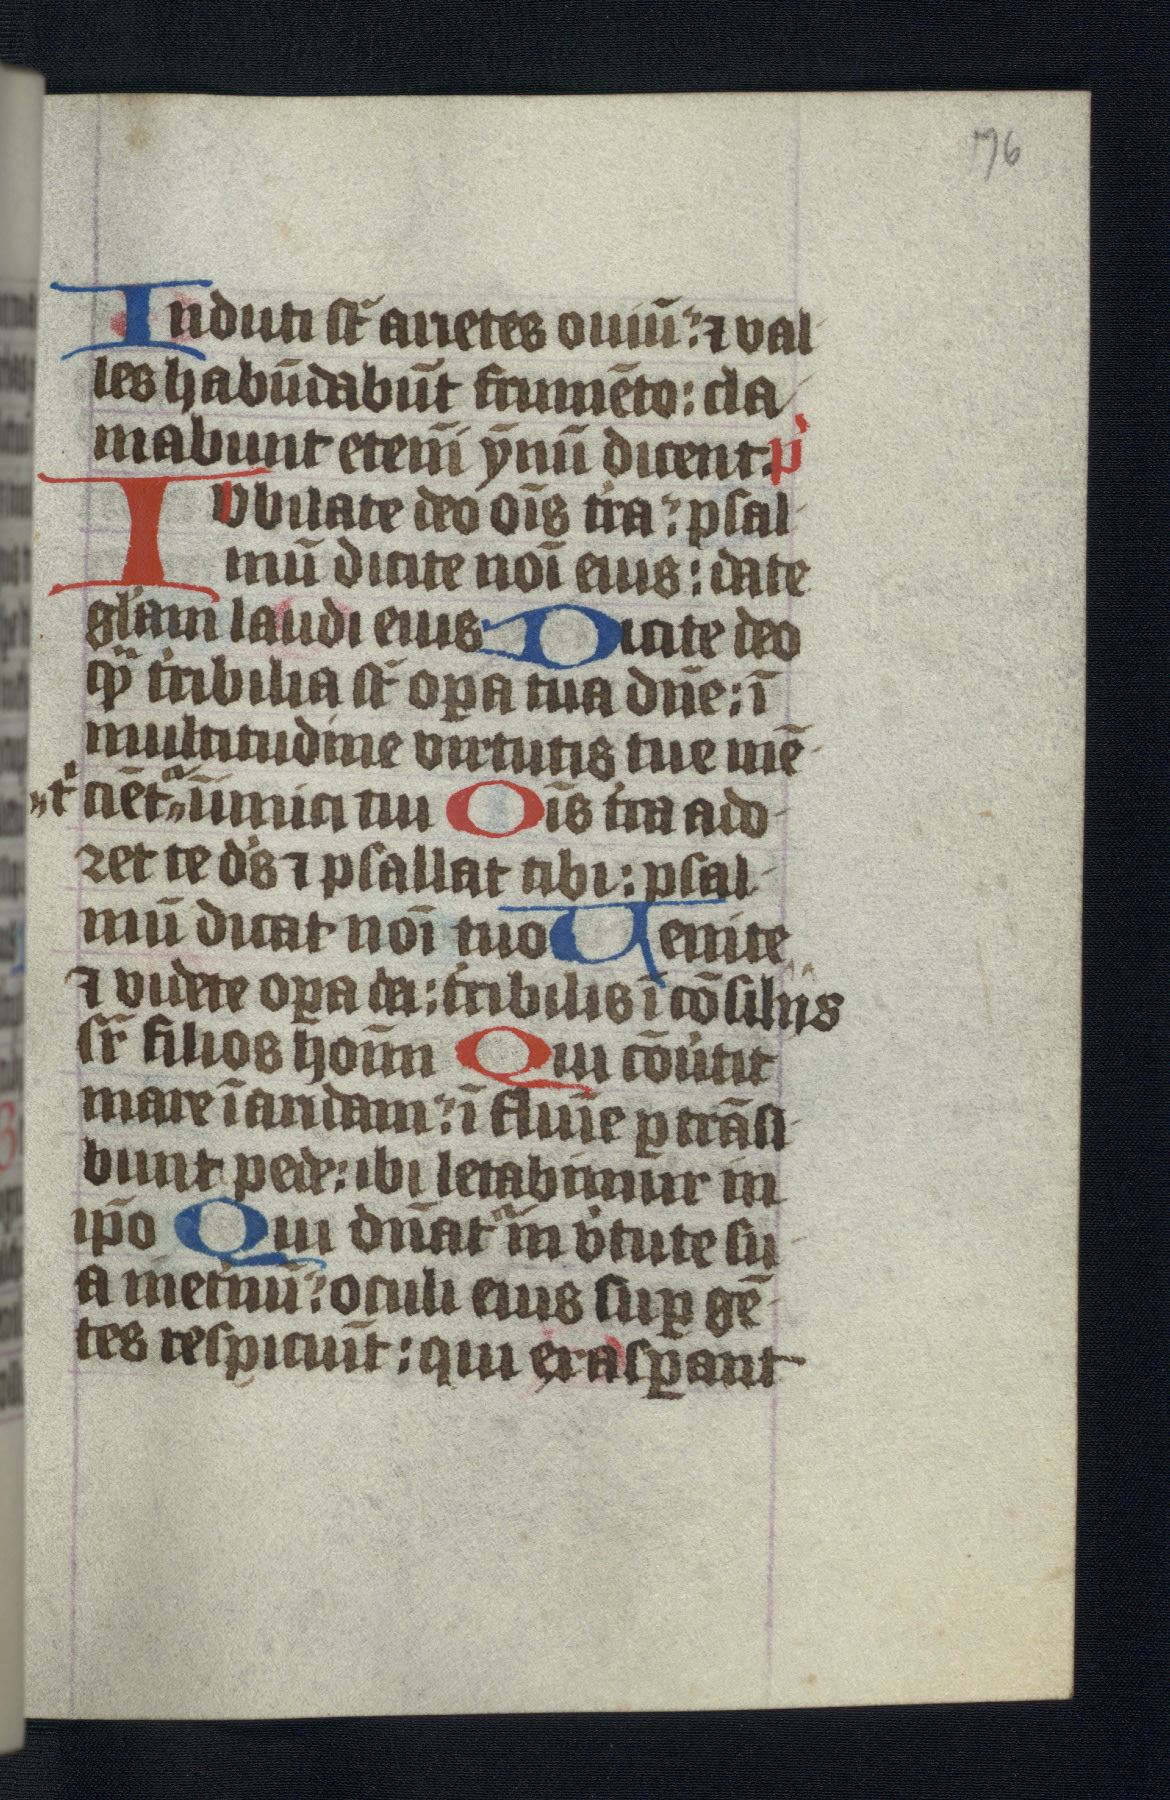 76
Induti st̄ arietes ouiū: ⁊ val
les habūdabūt frumēto: cla
mabunt etem̄ ȳnū dicent. p̄
Iubilate deo oīs tra: psal
mū dicite noī eius: date
glam laudi eius Dicite deo
q̄ tribilia st̄ opa tua dn̄e: ī
multitudine virtutis tue mē
tciēt inimici tui Oīs tra ado
ret te ds ⁊ psallat tibi: psal
mū dicat noī tuo Uenite
⁊ videte opa dei: tribilis ī cōsilijs
sr̄ filios hoīm Qui cōutit
mare ī aridam: ī fluīe ptrāsi
bunt pede: ibi letabimur in
ip̄o Qui dn̄at in vtute su
a meternū: oculi eius sup gē
tes respiciūt: qui exaspant